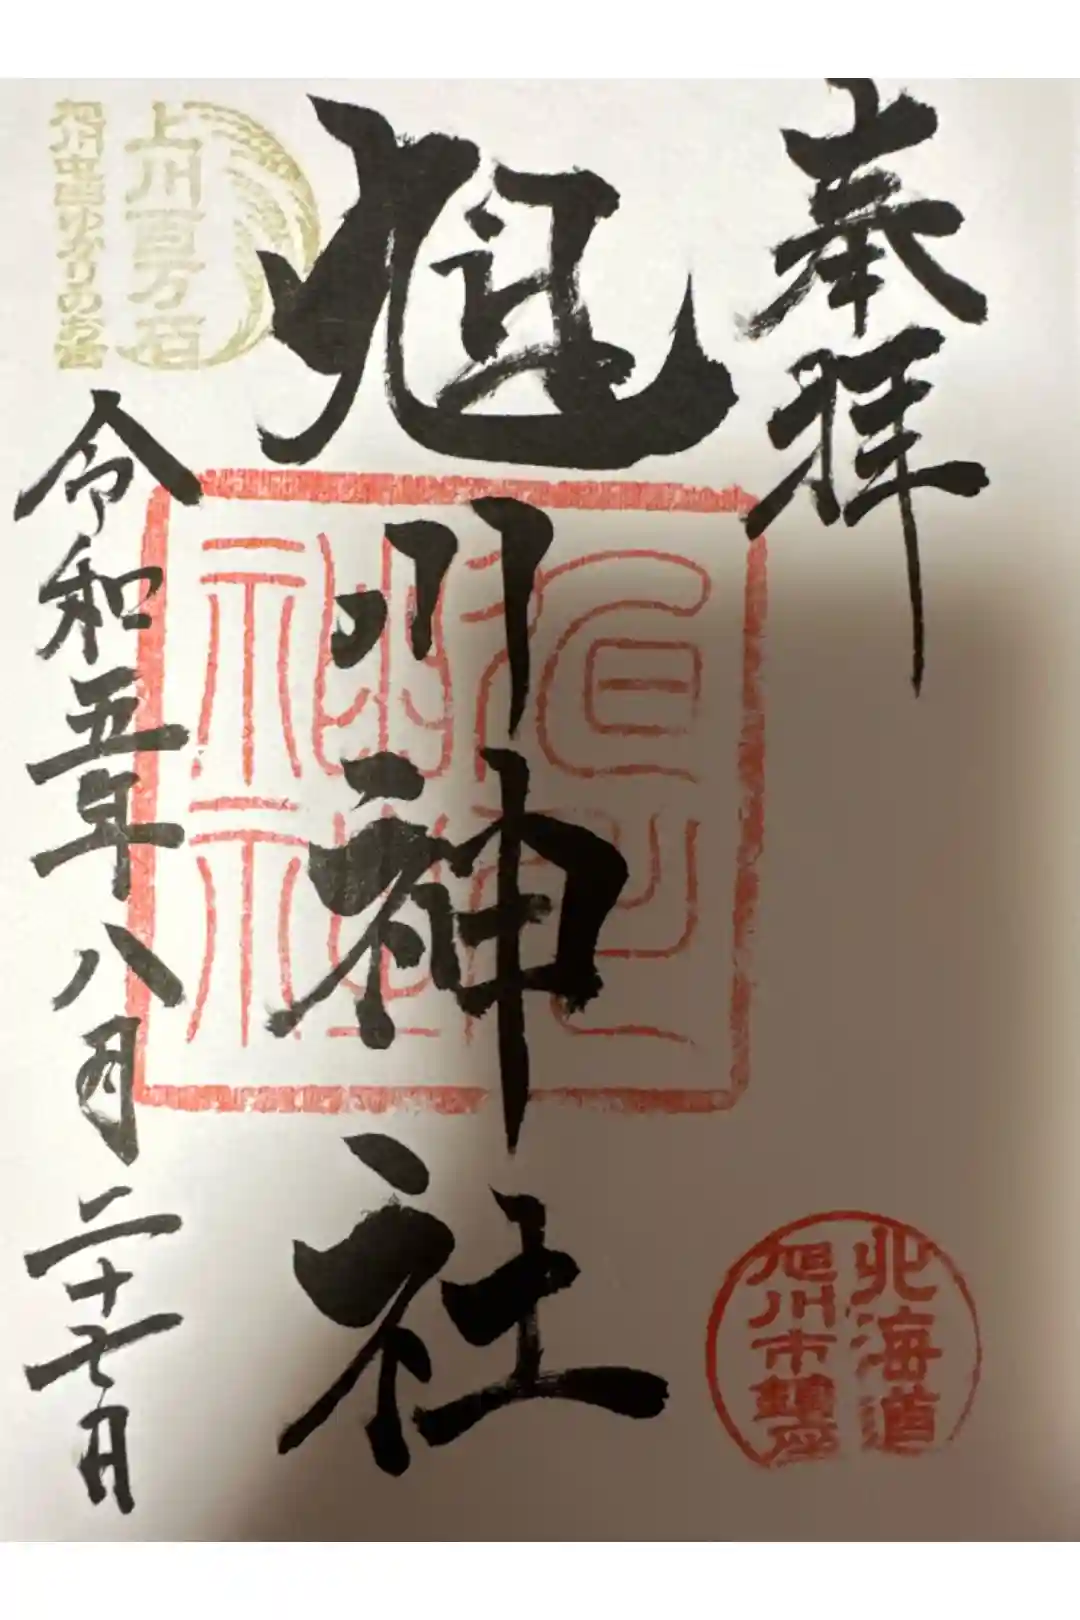 奉拝
旭川神社
旭川神社
上川百万石
旭川中産ゆかりのお宮
令和五年八月二十七日
北海道
旭川市鎮座